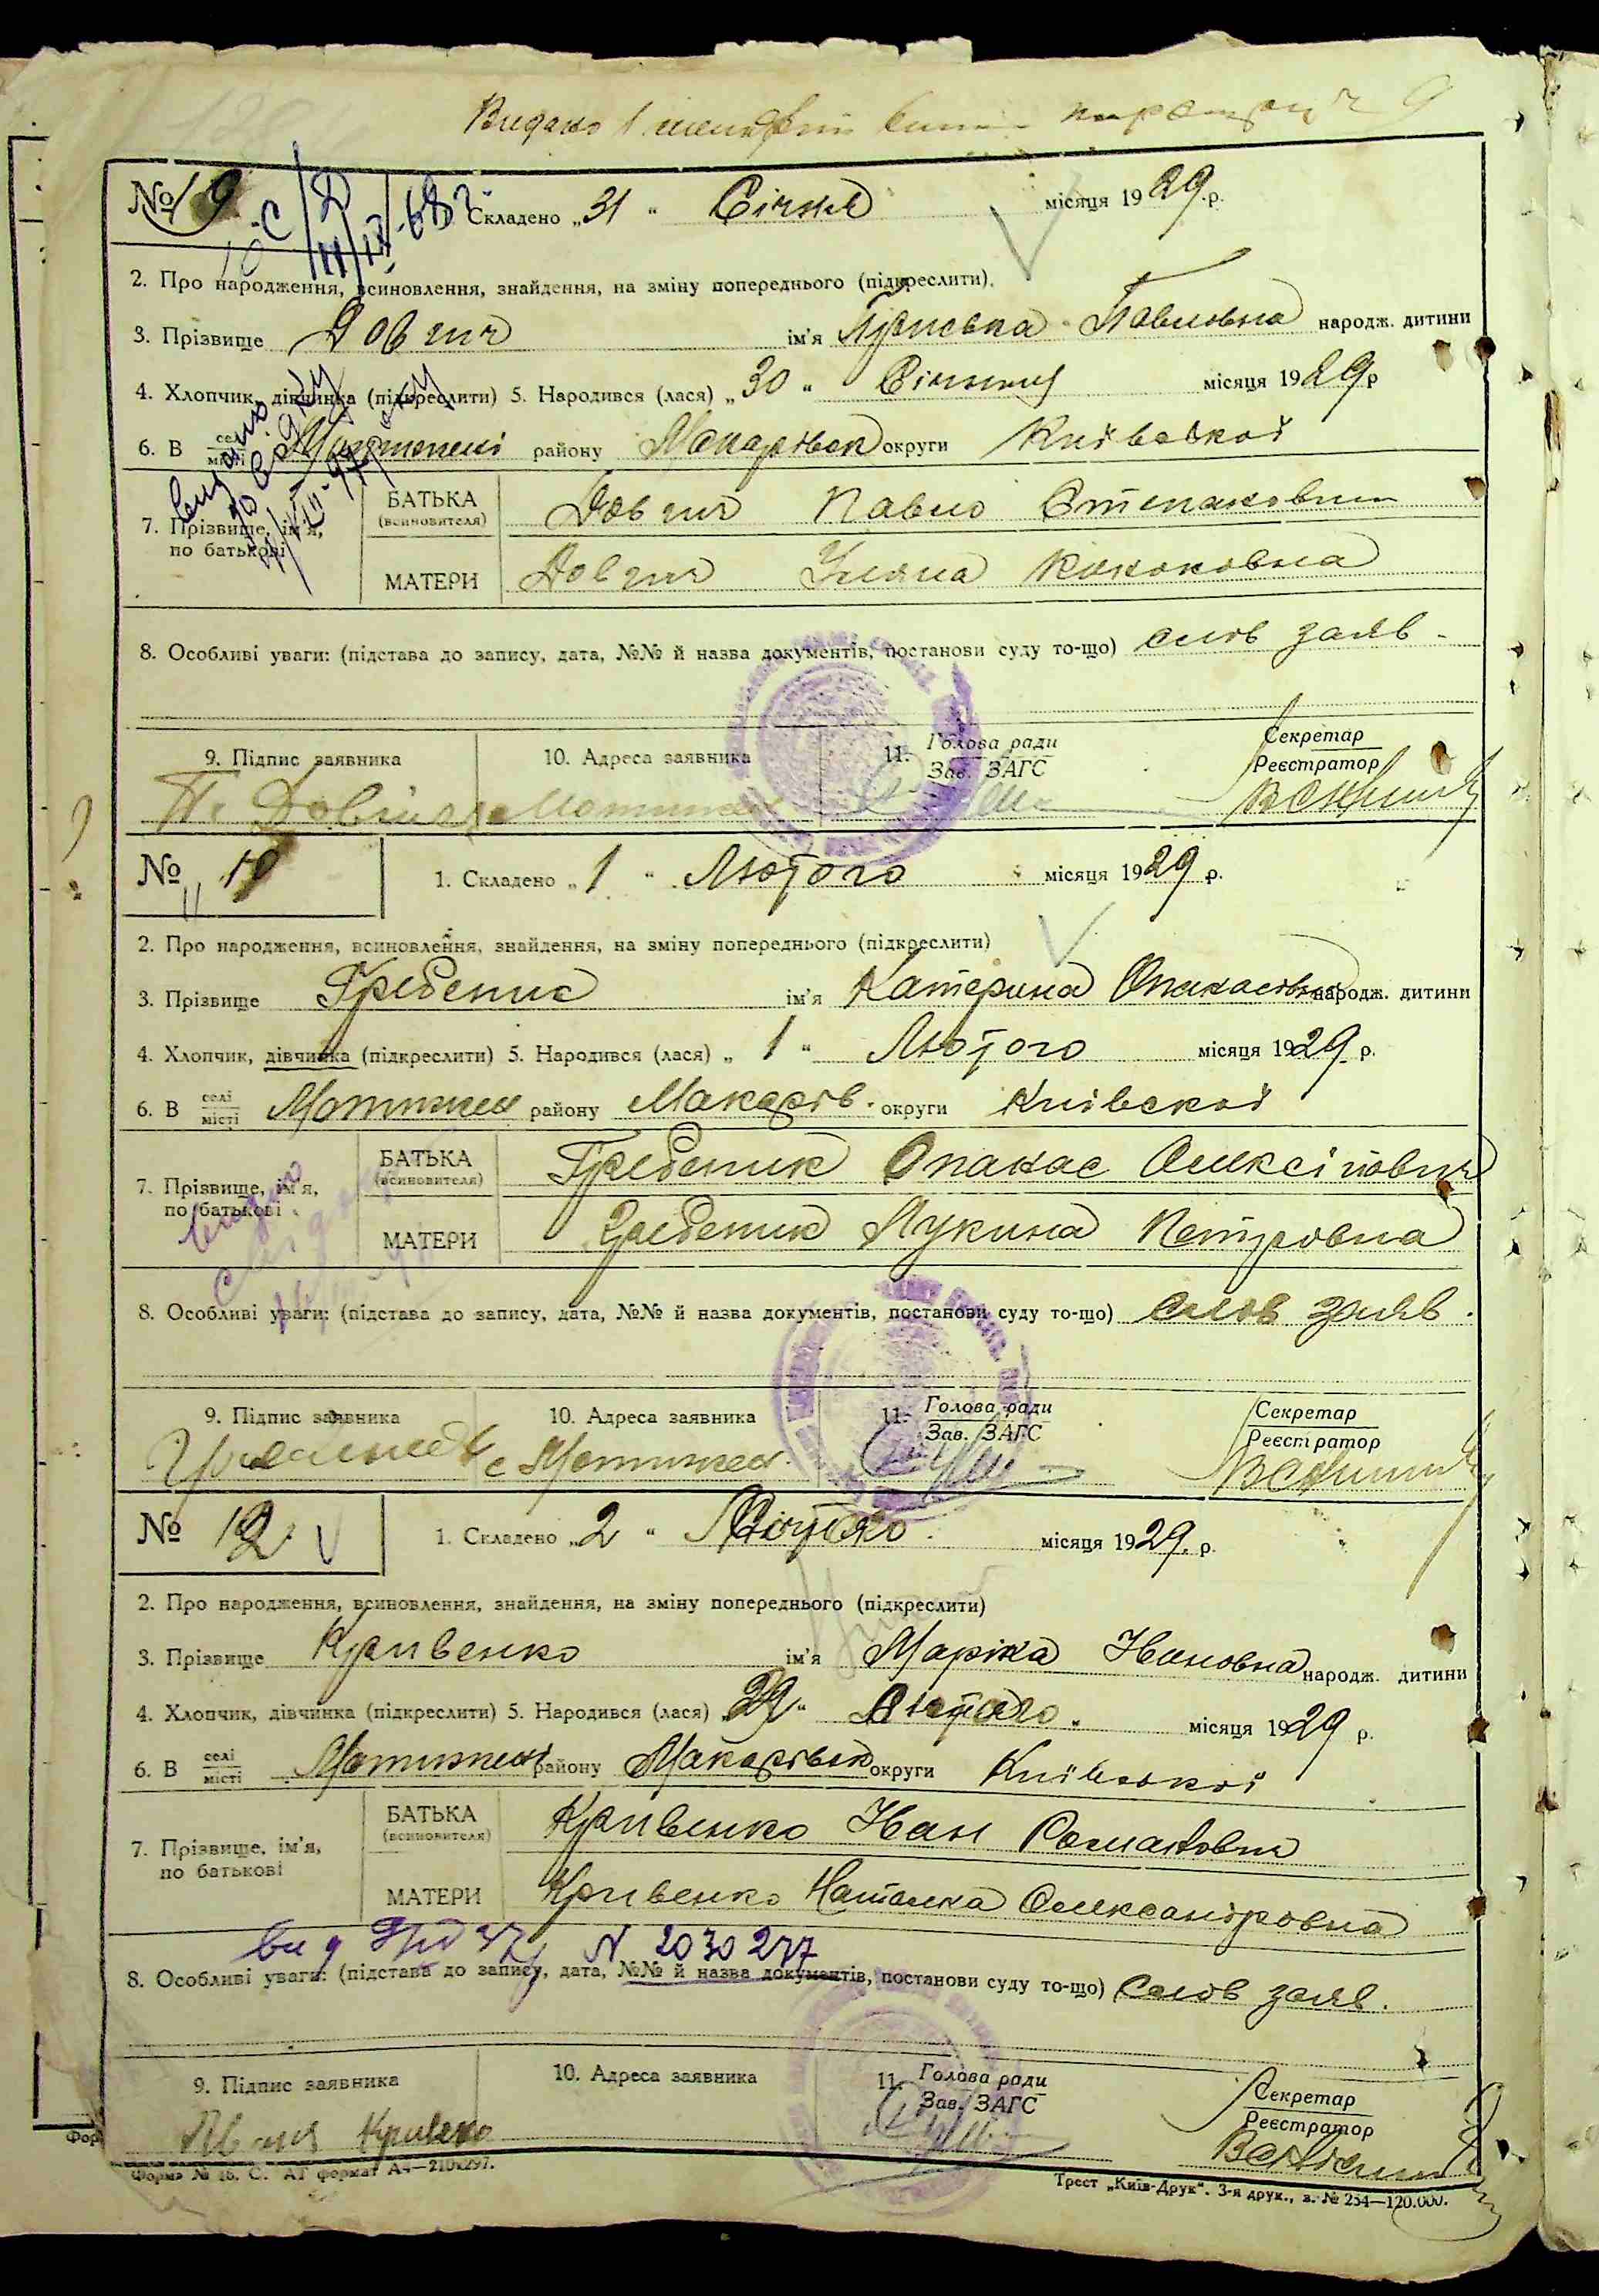 Видано
№ 9 Складено „31 " Січня місяця 1929 р.
2. Про народження, всиновлення, знайдення, на зміну попереднього (підкреслити).
3. Прізвище Довгич ім'я Павловна народж. дитини
4. Хлопчик, дівчинка (підкреслити) 5. Народився (лася) „30 " Січня місяця 1929 р
6. В селі місті району Макарівськ округи Київської
7. Прізвище, ім'я, по батькові
БАТЬКА (всиновителя) Довгич Павло Степанович
МАТЕРИ Довгич Уляна
8. Особливі уваги: (підстава до запису, дата, №№ й назва документів, постанови суду то-що) слов заяв
9. Підпис заявника 10. Адреса заявника 11. Голова ради Зав. ЗАГС Секретар Реєстратор
№ 1. Складено „1 " Лютого місяця 1929 р.
2. Про народження, всиновлення, знайдення, на зміну попереднього (підкреслити)
3. Прізвище Гребеник ім'я Катерина Опанасовна народж. дитини
4. Хлопчик, дівчинка (підкреслити) 5. Народився (лася) „ 1 " Лютого місяця 1929 р.
6. В селі місті Мотижен району Макарів. округи Київської
7. Прізвище, ім'я, по батькові
БАТЬКА (всиновителя) Гребеник Опанас Олексійович
МАТЕРИ Гребеник Лукина Петровна
8. Особливі уваги: (підстава до запису, дата, №№ й назва документів, постанови суду то-що) слов заяв.
9. Підпис заявника 10. Адреса заявника 11. Голова ради Зав. ЗАГС Секретар Реєстратор
с Мотижен.
№ 12 1. Складено „2 " Лютого місяця 1929. р.
2. Про народження, всиновлення, знайдення, на зміну попереднього (підкреслити)
3. Прізвище Кривенко ім'я Марійка Івановна народж. дитини
4. Хлопчик, дівчинка (підкреслити) 5. Народився (лася) місяця 1929 р.
6. В селі місті Мотижені району Макарівськ округи Київської
7. Прізвище, ім'я, по батькові
БАТЬКА (всиновителя) Кривенко Іван Романович
МАТЕРИ Кривенко Наталка Олександровна
N 2030277
8. Особливі уваги: (підстава до запису, дата, №№ й назва документів, постанови суду то-що) слов заяв.
9. Підпис заявника 10. Адреса заявника 11. Голова ради Зав. ЗАГС Секретар Реєстратор
Форма № 16. С. АТ формат А4—210х297.
Трест „Київ-Друк". 3-я друк., з. № 254—120.000.